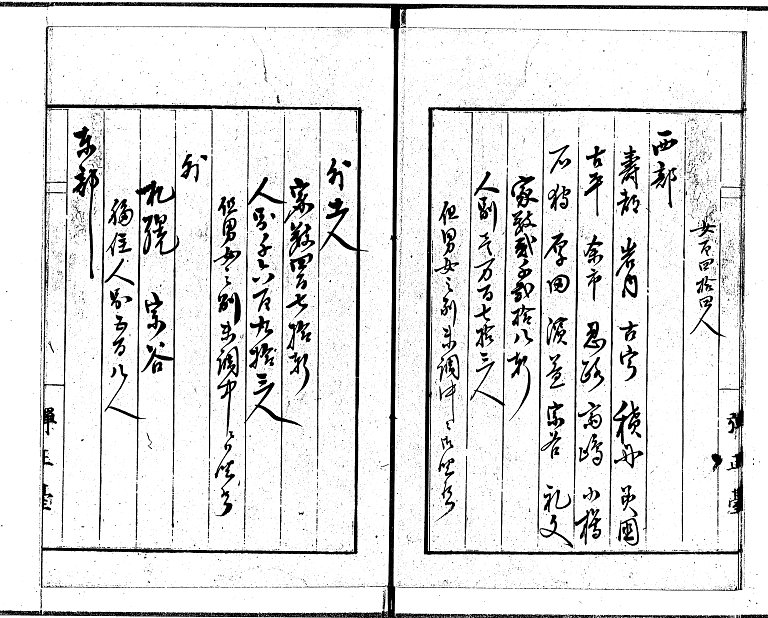 女百四拾四人
西部
壽都 岩内 古宇 積丹 美國
古平 余市 忍路 高嶋 小樽
石狩 厚田 濱益 宗谷 礼文
家数弐千弐拾八軒
人別壱万百七拾三人
但男女之別未調中
外土人
家数四百七拾軒
人別千六百九拾三人
但男女之別未調中
外
札幌 宗谷
橘佳人別五百八人
東部
彈正臺
彈正臺